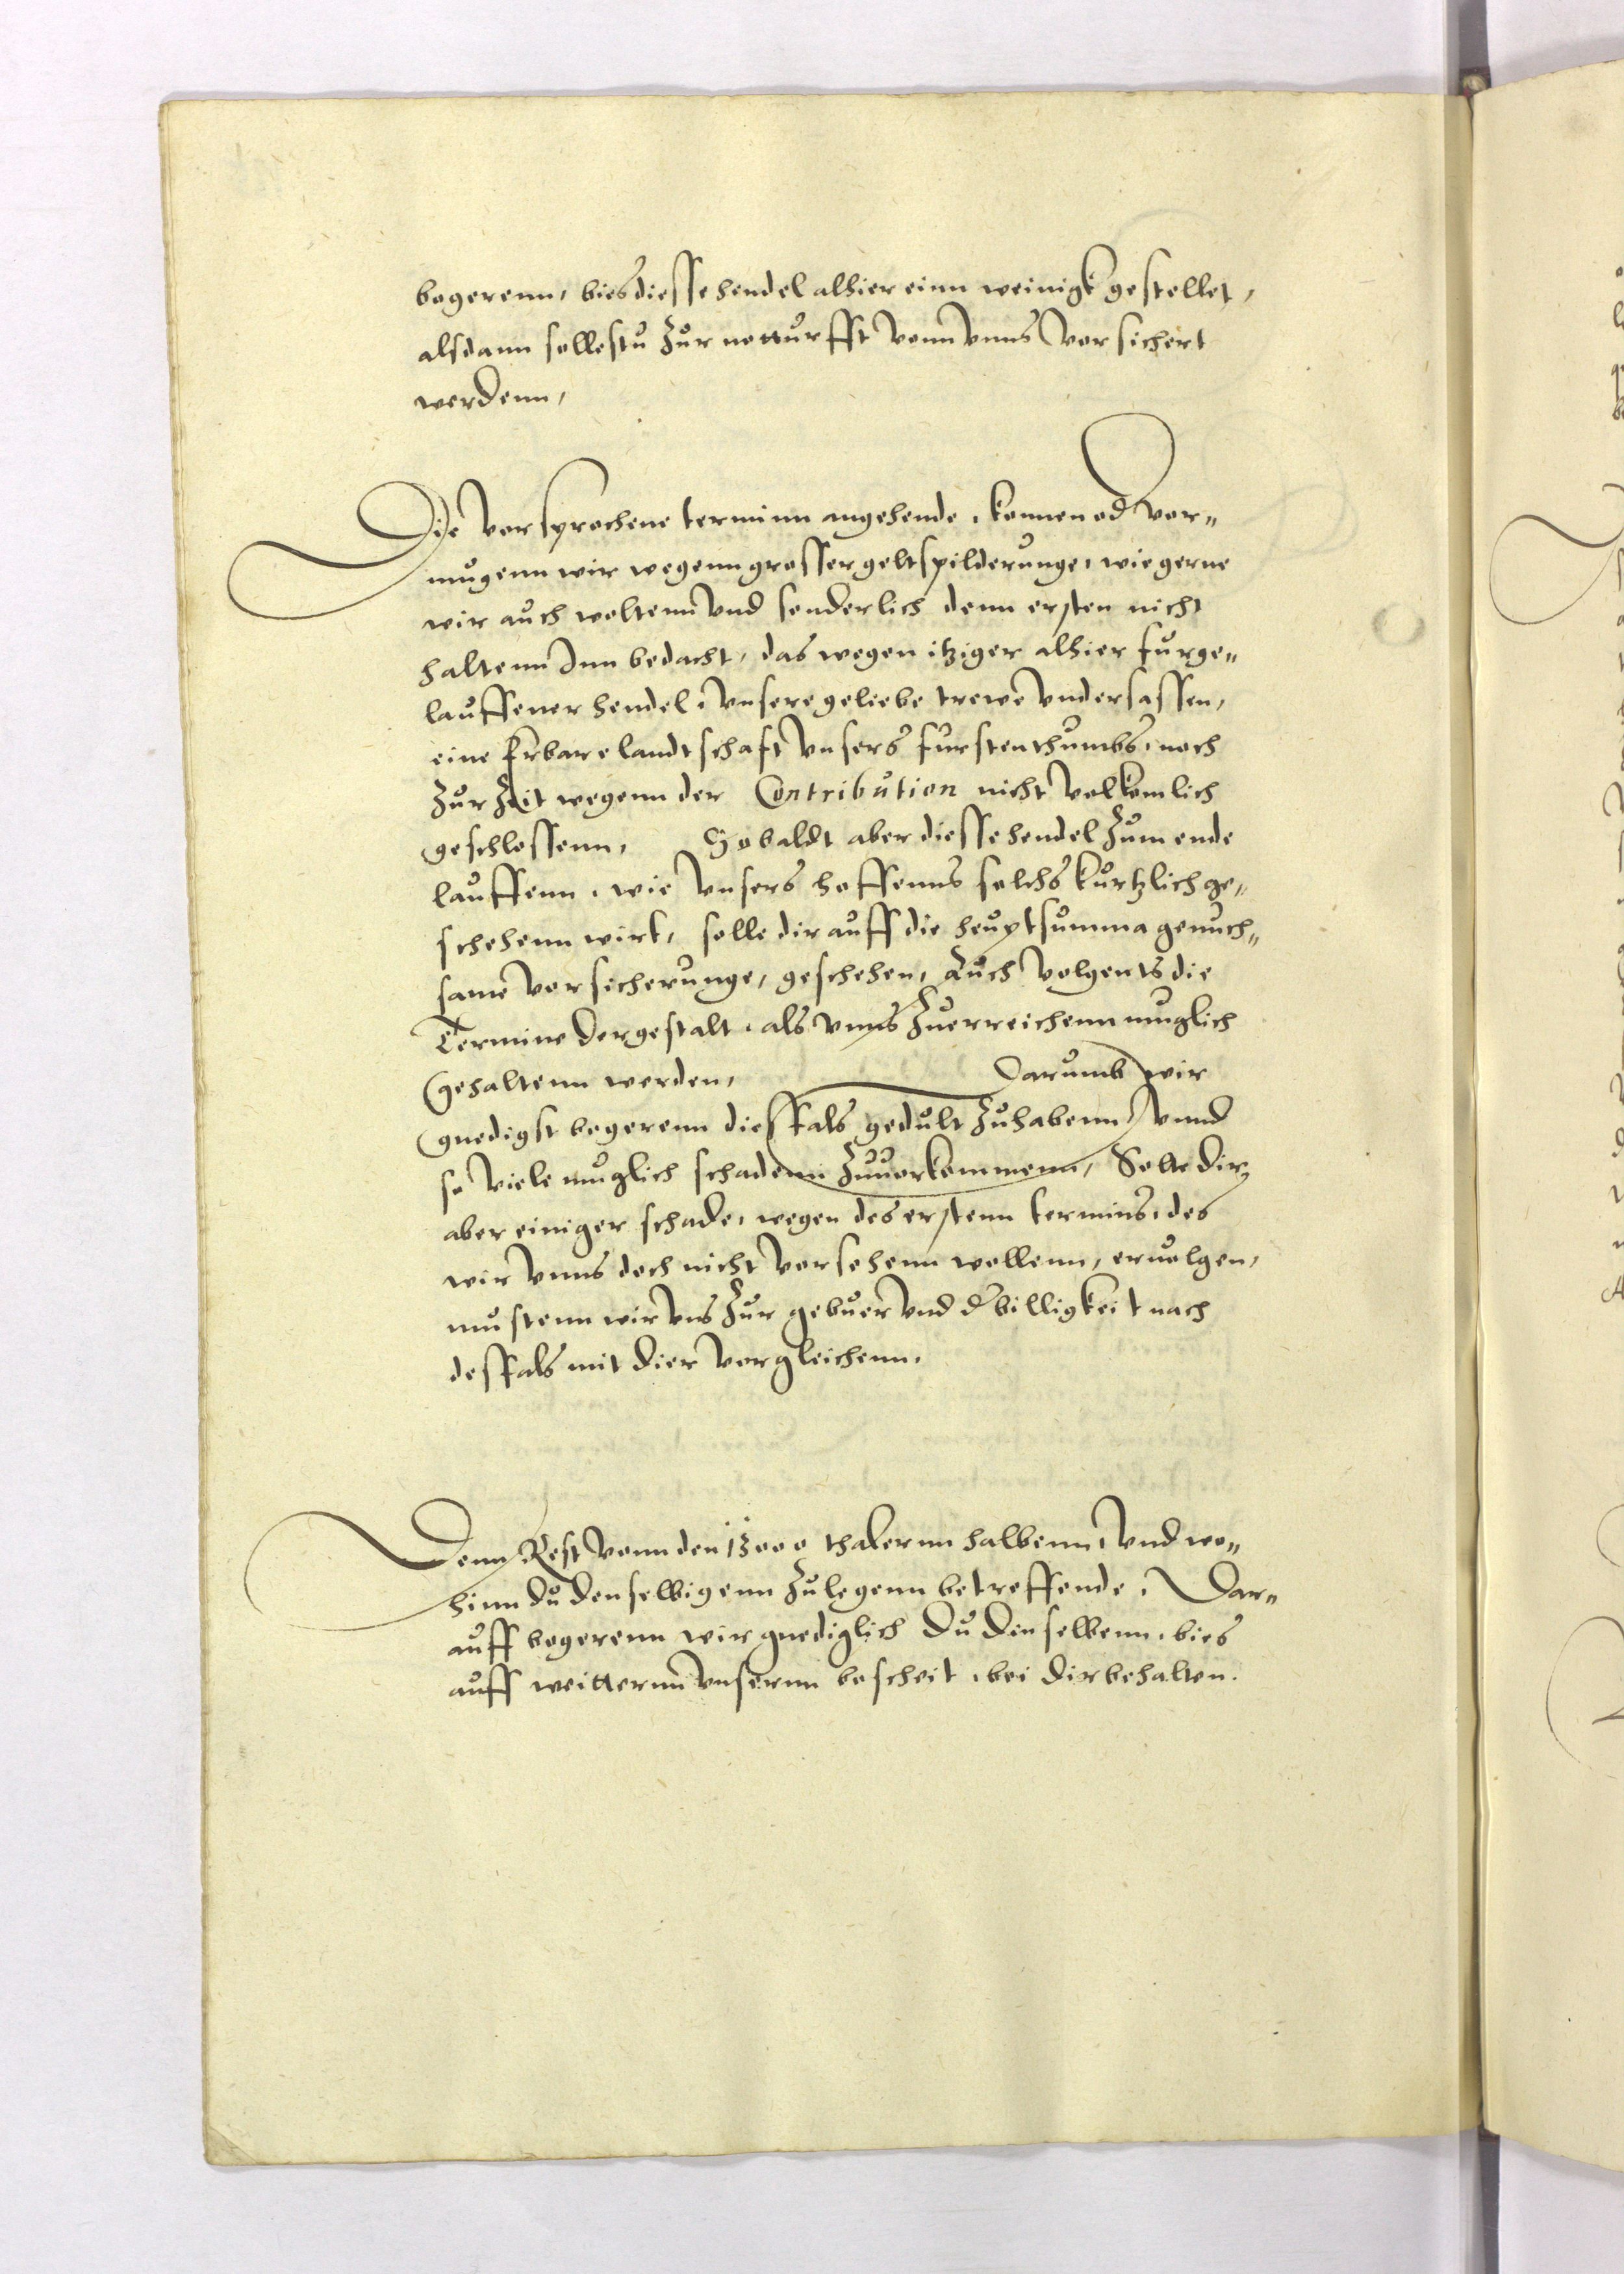 begerenn, bies diesse hendel alhier einn weinigk gestellet,
alsdann sollestu zur notturfft vonn vnns vorsichert
werdenn,
Die vorsprochene terminn angehende, konnen od vor„
mugenn wir wegenn grosser geltspilderunge, wie gerne
wir auch woltenn vnd sonderlich denn ersten nicht
haltenn Inn bedacht, das wegen itziger alhier furge„
lauffener hendel, vnsere geliebe trewe vndersassen,
eine Erbare landtschaft vnsers furstenthumbs, noch
zur Zeit wegenn der Contribution nicht volkomlich
geschlossenn, Sobaldt aber diesse hendel zum ende
lauffenn, wie vnsers hoffenns solchs kurtzlich ge„
schehenn wirt, solle dir auff die heuptsumma genuch„
same vorsicherunge, geschehen, Auch volgents die
Termine dergestalt, als vnns zuerreichenn muglich
gehaltenn werden, Darumb wir
gnedigst begerenn diesfals gedult zuhabenn vnnd
so viele muglich schadenn zuuorkommenn, Solte dir
aber einiger schade, wegen des erstenn termins, des
wir vnns doch nicht vorsehenn wollenn, eruolgen,
mustenn wir vns zur gebuer vnd d billigkeit nach
desfals mit dier vorgleichenn.
Denn Rest vonn den 13000 thalernn halbenn, vnd wo„
hinn du denselbigenn zulegenn betreffende, Dar„
auff begerenn wir gnediglich du denselbenn, bies
auff weitternn vnsernn bescheit, bei dir behalten.